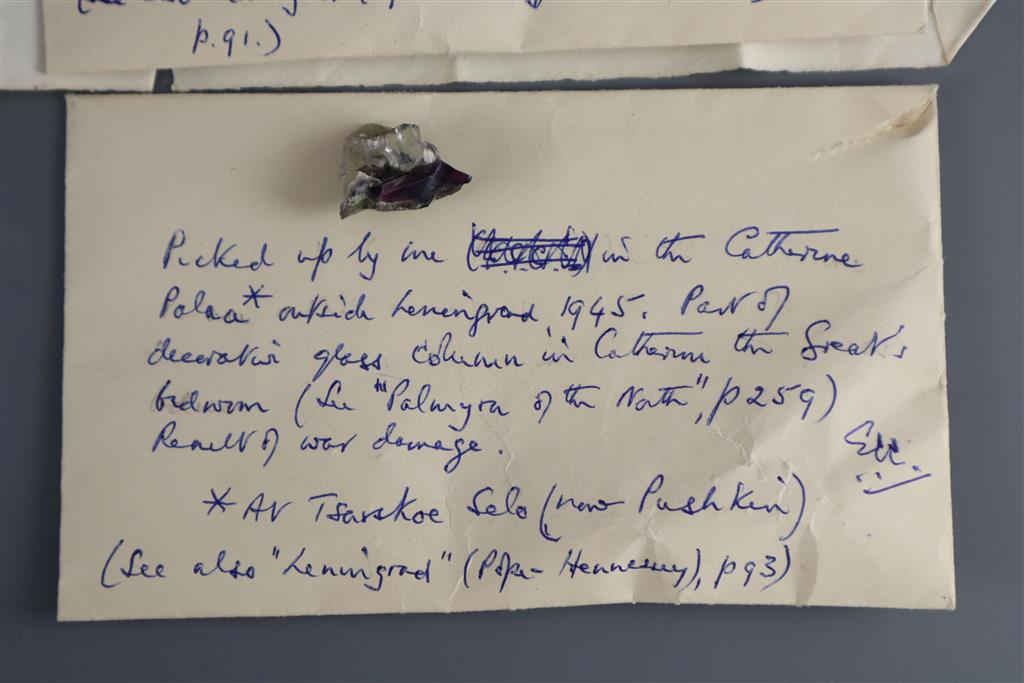 (See also
p.91.)
Picked up by me in the Catherine
Palace* outside Leningrad, 1945. Part of
decorative glass column in Catherine the Great's
bedroom (See "Palmyra of the North", p 259)
Result of war damage.
* At Tsarskoe Selo (now Pushkin)
(See also "Leningrad" (Pope-Hennessy), p 93)